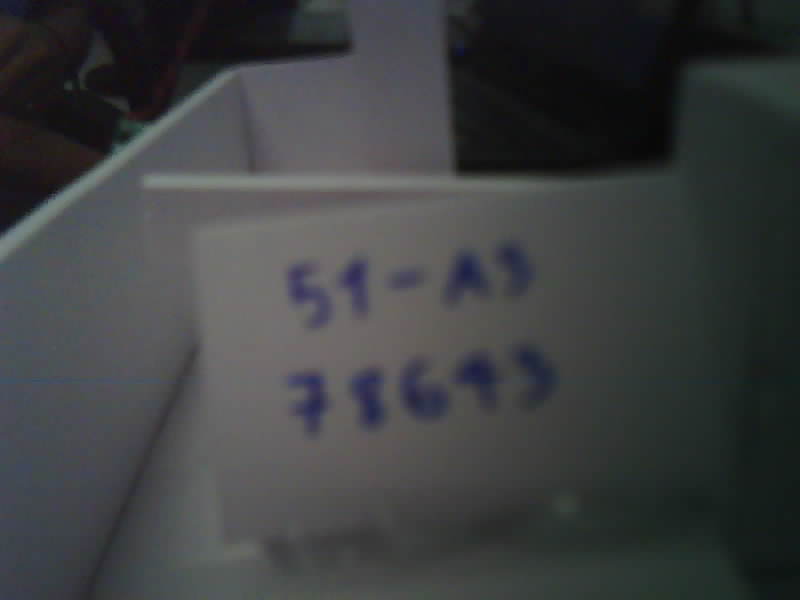 51-A3
78643